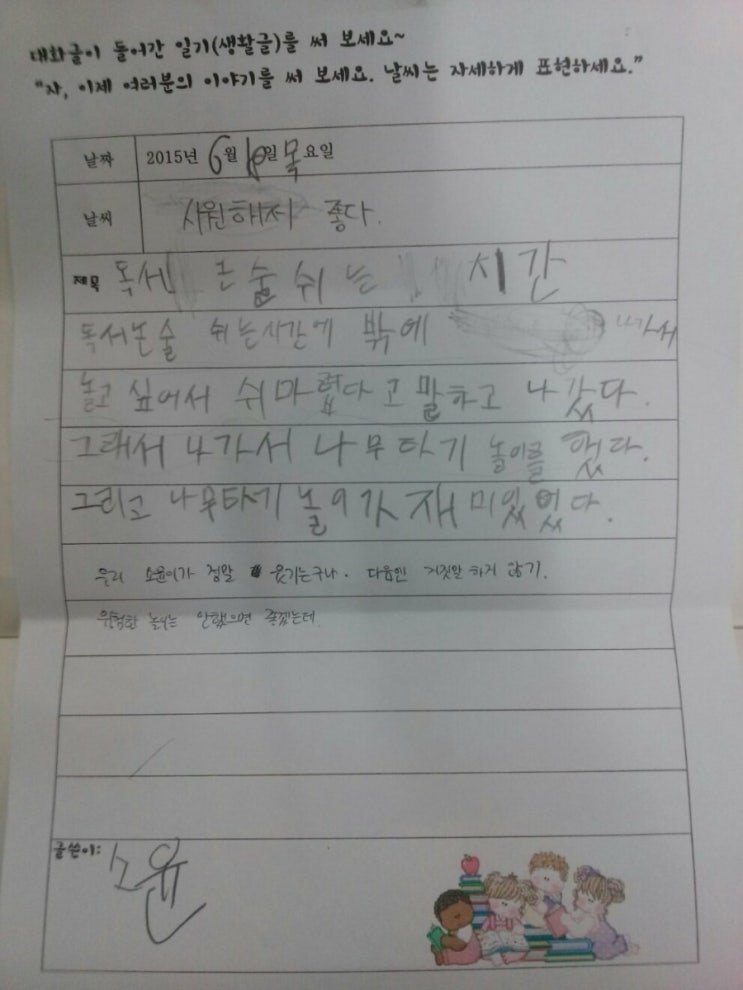 대화글이 들어간 일기(생활글)를 써 보세요~
"자, 이제 여러분의 이야기를 써 보세요. 날씨는 자세하게 표현하세요."
날짜 2015년 6월 일 목요일
날씨 사원해서 좋다.
제목 독서 논술 쉬는 시간
독서논술 쉬는시간에 밖에 나가서
놀고 싶어서 쉬마렵다고 말하고 나갔다.
그래서 나가서 나무타기 놀이를 했다.
그리고 나무타기 놀이가 재미있었다.
우리 소윤이가 정말 웃기는구나. 다음엔 거짓말 하지 않기.
위험한 놀이는 안했으면 좋겠는데.
글쓴이: 소윤